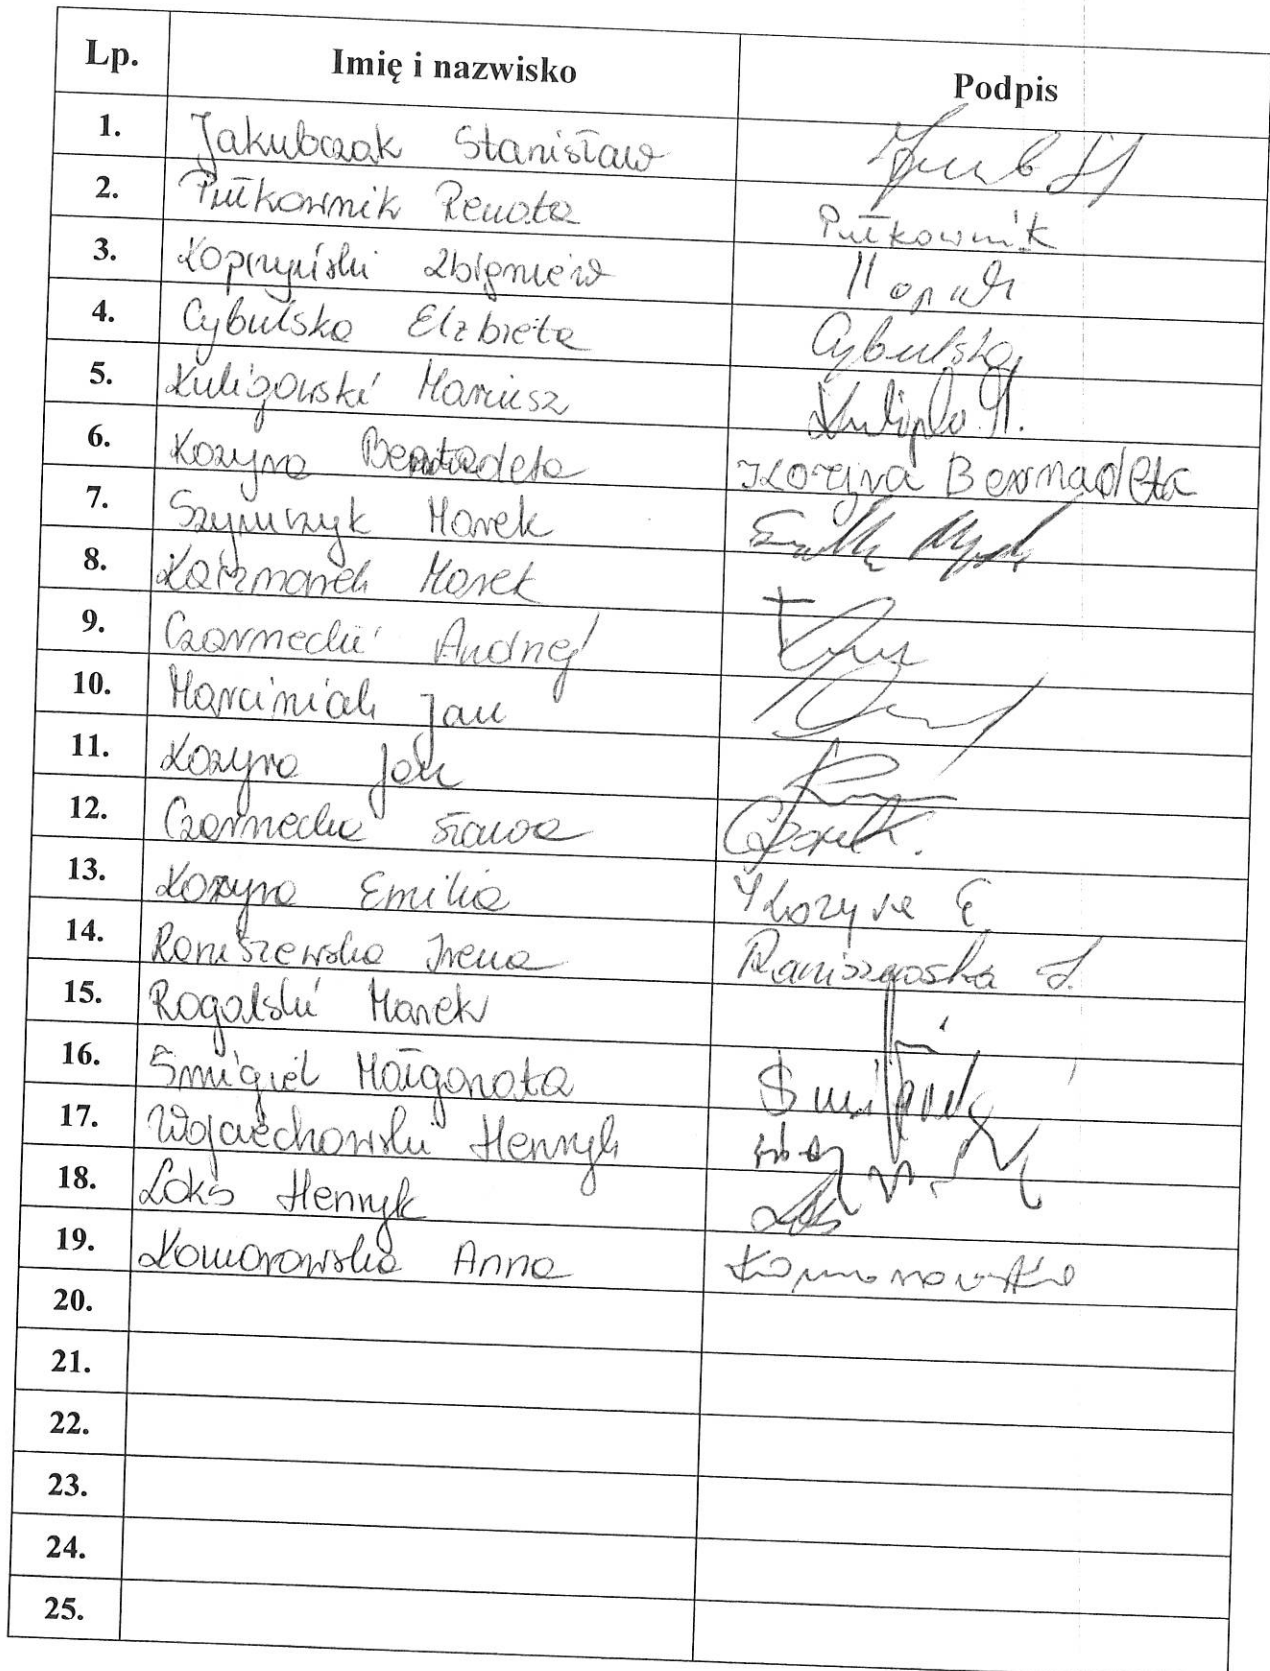 Lp. Imię i nazwisko Podpis
1. Jakubczak Stanisław
2. Pułkownik Renata Pułkownik
3. Kopczyński Zbigniew
4. Cybulska Elżbieta Cybulska
5. Kuligowski Mariusz
6. Kozyra Bernadeta Kozyra Bernadeta
7. Szymczyk Marek
8. Kaczmarek Marek
9. Czarnecki Andrzej
10. Marciniak Jan
11. Kozyra Jan
12. Czarnecka Sława
13. Kozyra Emilia Kozyra E
14. Raniszewska Irena Raniszewska I.
15. Rogalski Marek
16. Śmigiel Małgorzata
17. Wojciechowski Henryk
18. Loks Henryk
19. Komorowska Anna Komorowska
20.
21.
22.
23.
24.
25.